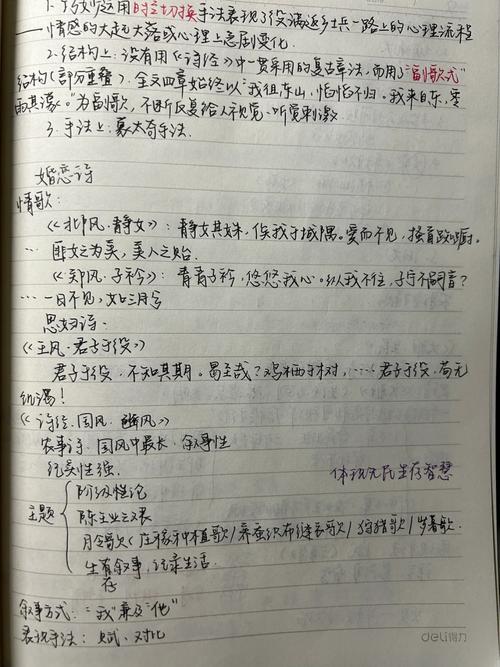 1. 巧妙运用时空切换手法表现了役满返乡士兵一路上的心理流程
——情感的大起大落或心理上急剧变化.
2. 结构上: 没有用《诗经》中一贯采用的复古章法, 而用了“副歌式”
结构(部分重叠). 全文四章始终以“我徂东山, 慆慆不归。我来自东, 零
雨其濛。”为副歌, 不断反复给人视觉、听觉刺激
3. 手法上: 蒙太奇手法.
婚恋诗
情歌:
《邶风·静女》: 静女其姝, 俟我于城隅。爱而不见, 搔首踟蹰.
… 匪女之为美, 美人之贻.
《郑风·子衿》: 青青子衿, 悠悠我心. 纵我不往, 子宁不嗣音?
… 一日不见, 如三月兮
思妇诗.
《王风·君子于役》
君子于役. 不知其期. 曷至哉? 鸡栖于埘, …… 君子于役, 苟无
饥渴!
《诗经·国风·豳风》
农事诗. 国风中最长. 叙事性
纪实性强.
体现先民生存智慧
主题
阶级性论
陈王业之艰
月令歌(庄稼种植歌/养蚕织布缝衣歌/狩猎歌/岁暮歌.
生存叙事, 纪录生活.
叙事方式: “我”兼及“他”
表现手法: 赋、对比
deli得力